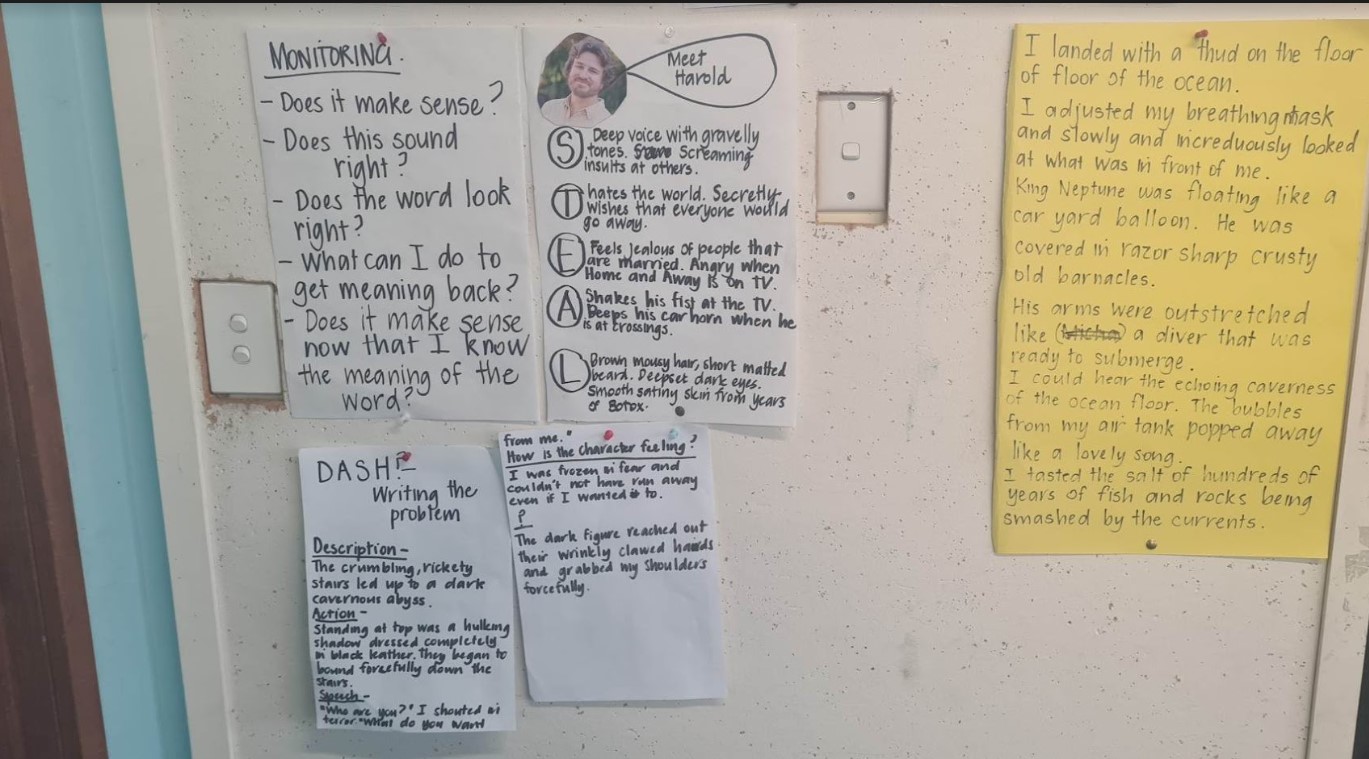 MONITORING.
- Does it make sense?
- Does this sound
right?
- Does the word look
right?
- What can I do to
get meaning back?
- Does it make sense
now that I know
the meaning of the
word?
Meet
Harold
S Deep voice with gravelly
tones. Screaming
insults at others.
T hates the world. Secretly
wishes that everyone would
go away.
E Feels jealous of people that
are married. Angry when
Home and Away is on TV.
A Shakes his fist at the TV.
Beeps his car horn when he
is at crossings.
L Brown mousy hair, short matted
beard. Deepset dark eyes.
Smooth satiny skin from years
of Botox.
DASH?
Writing the
problem
Description -
The crumbling, rickety
stairs led up to a dark
cavernous abyss.
Action -
Standing at top was a hulking
shadow dressed completely
in black leather. They began to
bound forcefully down the
stairs.
Speech -
"Who are you?" I shouted in
terror "What do you want
from me."
How is the character feeling?
I was frozen in fear and
couldn't not have run away
even if I wanted to.
P
The dark figure reached out
their wrinkly clawed hands
and grabbed my shoulders
forcefully.
I landed with a thud on the floor
of floor of the ocean.
I adjusted my breathing mask
and slowly and increduously looked
at what was in front of me.
King Neptune was floating like a
car yard balloon. He was
covered in razor sharp crusty
old barnacles.
His arms were outstretched
like a diver that was
ready to submerge.
I could hear the echoing caverness
of the ocean floor. The bubbles
from my air tank popped away
like a lovely song.
I tasted the salt of hundreds of
years of fish and rocks being
smashed by the currents.